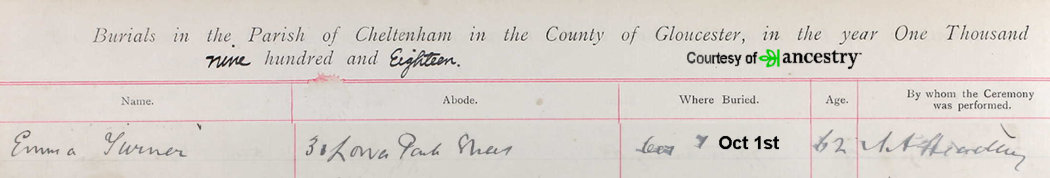 Burials in the Parish of Cheltenham in the County of Gloucester, in the year One Thousand
nine hundred and Eighteen.
Courtesy of ancestry
Name. Abode. Where Buried. Age. By whom the Ceremony was performed.
Emma Turner 30 Lower Park Street Oct 1st 62